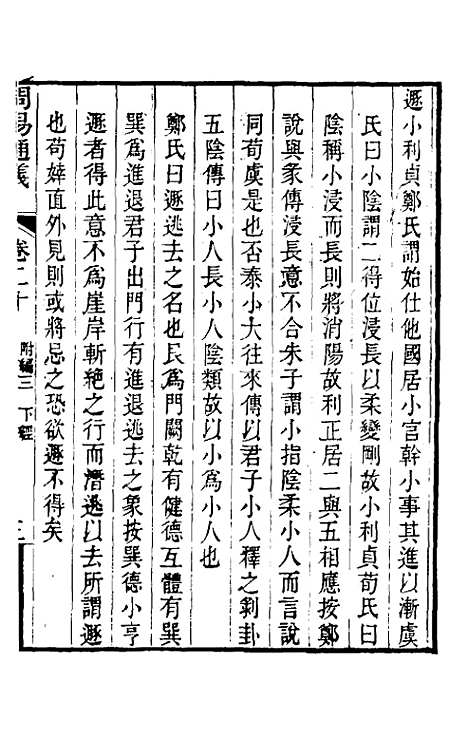 遯小利貞鄭氏謂始仕他國居小官幹小事其進以漸虞
氏曰小陰謂二得位浸長以柔變剛故小利貞荀氏曰
陰稱小浸而長則將消陽故利正居二與五相應按鄭
說與彖傳浸長意不合朱子謂小指陰柔小人而言說
同荀虞是也否泰小大往來傳以君子小人釋之剝卦
五陰傳曰小人長小人陰類故以小爲小人也
鄭氏曰遯逃去之名也艮爲門闕乾有健德互體有巽
巽爲進退君子出門行有進退逃去之象按巽德小亨
遯者得此意不爲崖岸斬絶之行而潛遜以去所謂遯
也苟婞直外見則或將忌之恐欲遯不得矣
周易通義 卷二十 附編三 下經 三